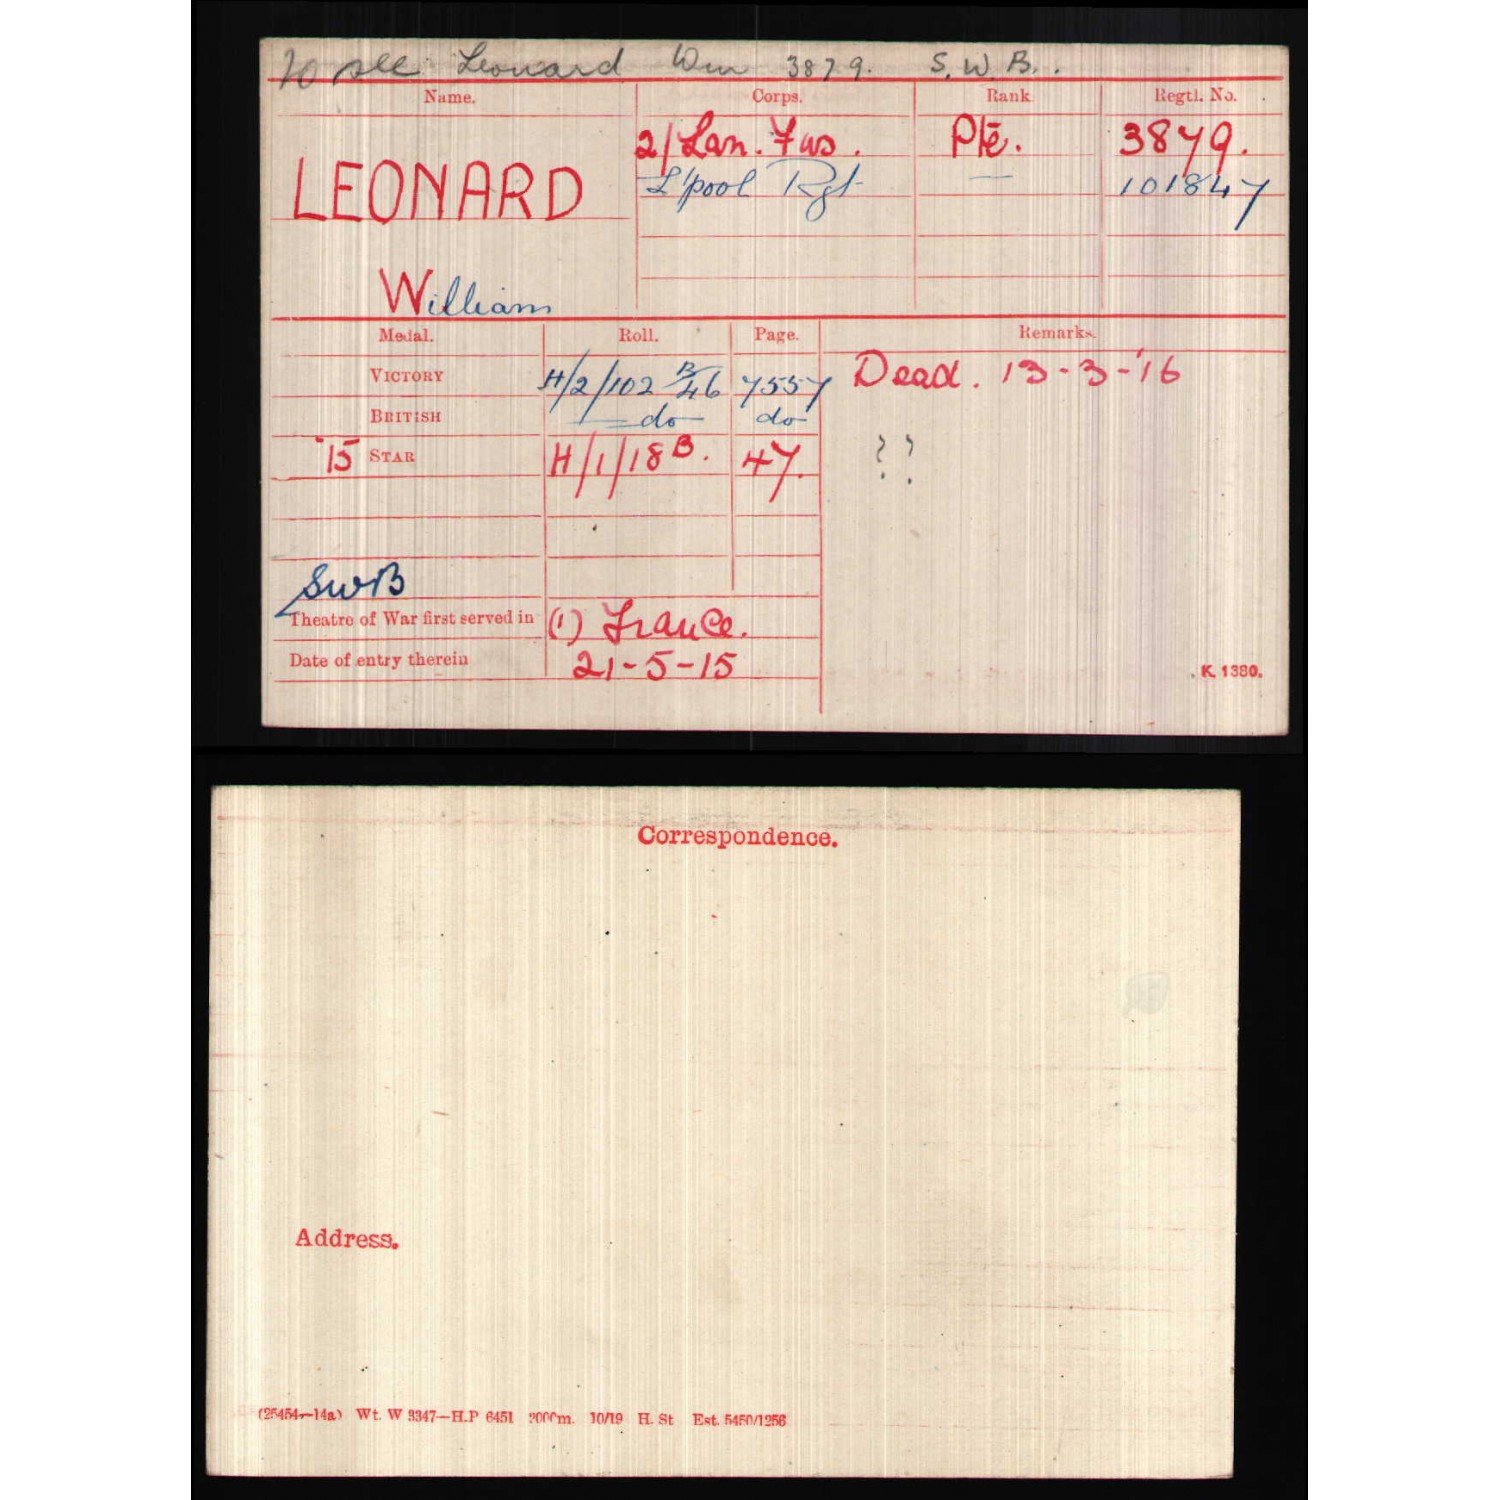 To see Leonard Wm 3879. S.W.B.
Name. Corps. Rank Regtl. No.
LEONARD 2/Lan. Fus. Pte. 3879.
L'pool Rgt — 101847
William
Medal. Roll. Page. Remarks.
VICTORY H/2/102 B46 7557 Dead. 13-3-'16
BRITISH do do
'15 STAR H/1/18 B. 47. ? ?
SWB
Theatre of War first served in (1) France.
Date of entry therein 21-5-15
K. 1380.
Correspondence.
Address.
(25454—14a) Wt. W 3347—H.P 6451 2000m. 10/19 H. St Est. 5450/1256